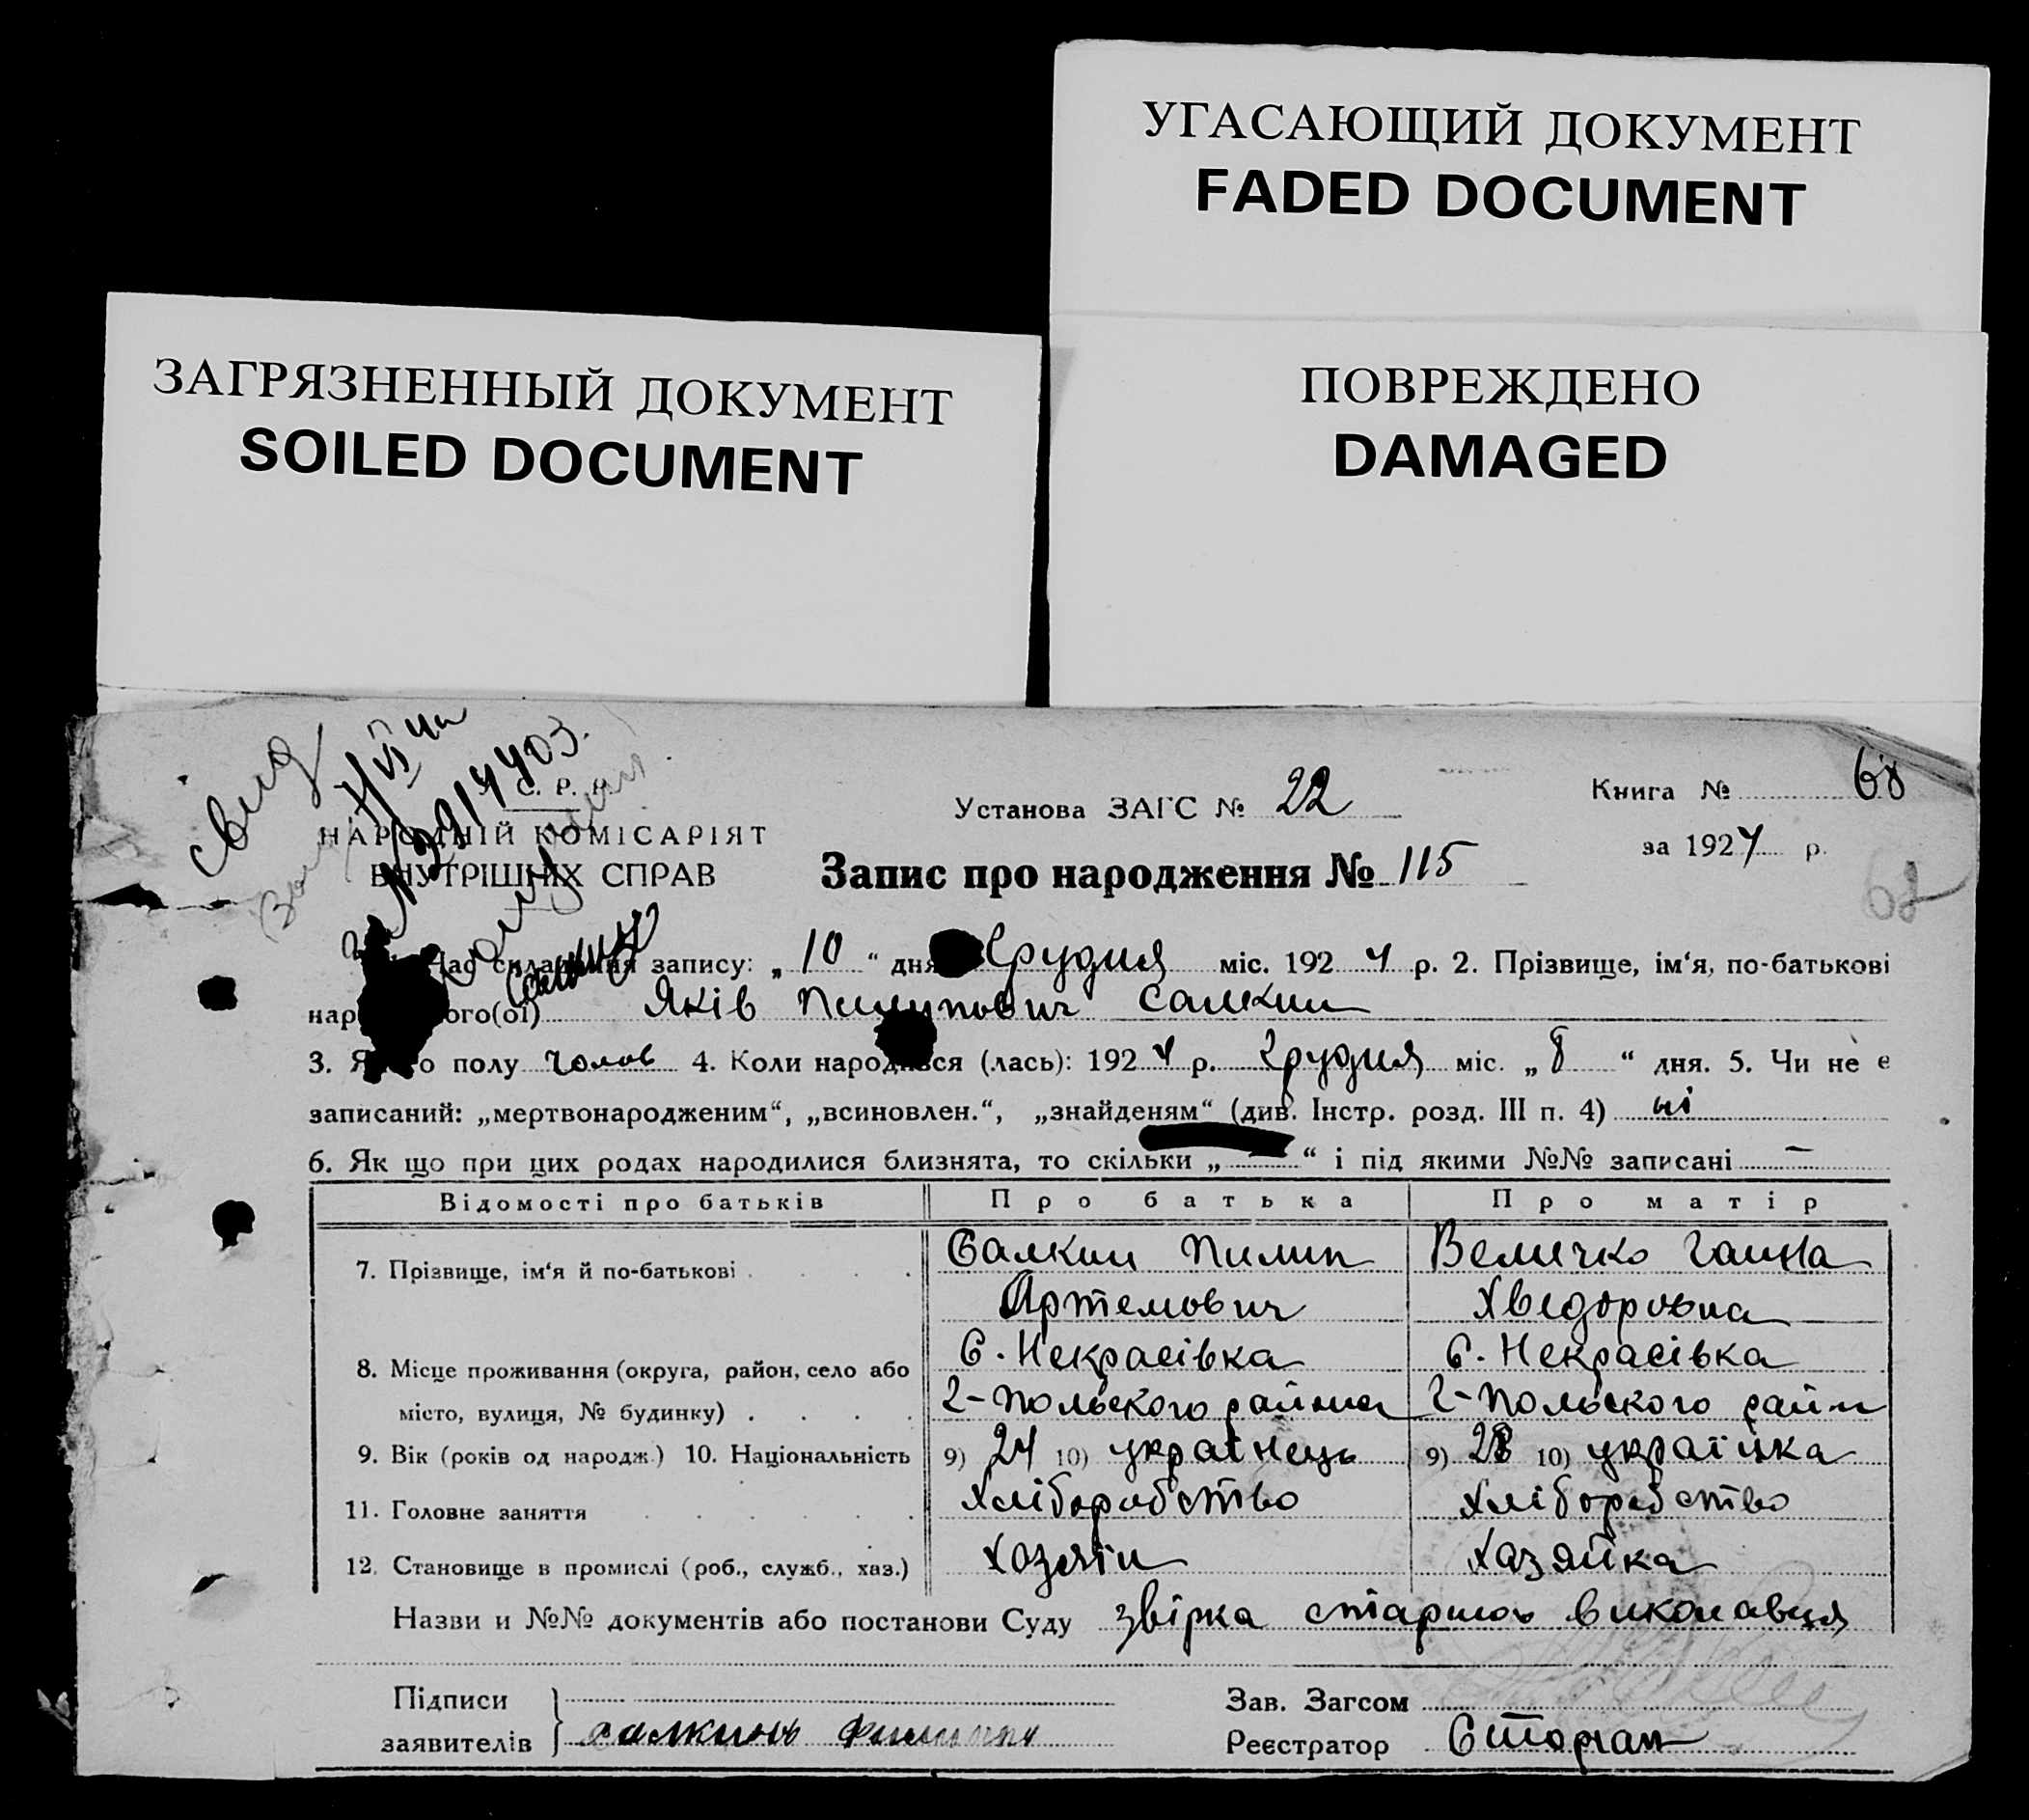 УГАСАЮЩИЙ ДОКУМЕНТ
FADED DOCUMENT
ЗАГРЯЗНЕННЫЙ ДОКУМЕНТ
SOILED DOCUMENT
ПОВРЕЖДЕНО
DAMAGED
свид
С. Р. Р.
НАРОДНІЙ КОМІСАРІЯТ
ВНУТРІШНІХ СПРАВ
Установа ЗАГС № 22
Книга № 68
за 1924 р.
68
Запис про народження № 115
Час складання запису: „ 10 “ дня Грудня міс. 1924 р. 2. Прізвище, ім'я, по-батькові
народженого(ої) Яків Пилипович Салкин
3. Якого полу чолов 4. Коли народився (лась): 1924 р. Грудня міс. „ 8 “ дня. 5. Чи не є
записаний: „мертвонародженим“, „всиновлен.“, „знайденям“ (див. Інстр. розд. III п. 4) ні
6. Як що при цих родах народилися близнята, то скільки „ “ і під якими №№ записані —
Відомості про батьків Про батька Про матір
7. Прізвище, ім'я й по-батькові Салкин Пилип Величко Ганна
Артемович Хведоровна
8. Місце проживання (округа, район, село або С. Некрасівка С. Некрасівка
місто, вулиця, № будинку) Г-Польского района Г-Польского район
9. Вік (років од народж.) 10. Національність 9) 24 10) українець 9) 28 10) українка
11. Головне заняття Хліборобство Хліборобство
12. Становище в промислі (роб., служб., хаз.) Хозяїн Хазяйка
Назви и №№ документів або постанови Суду звірка старшого виконавця
Підписи
заявителів
Зав. Загсом
Реєстратор